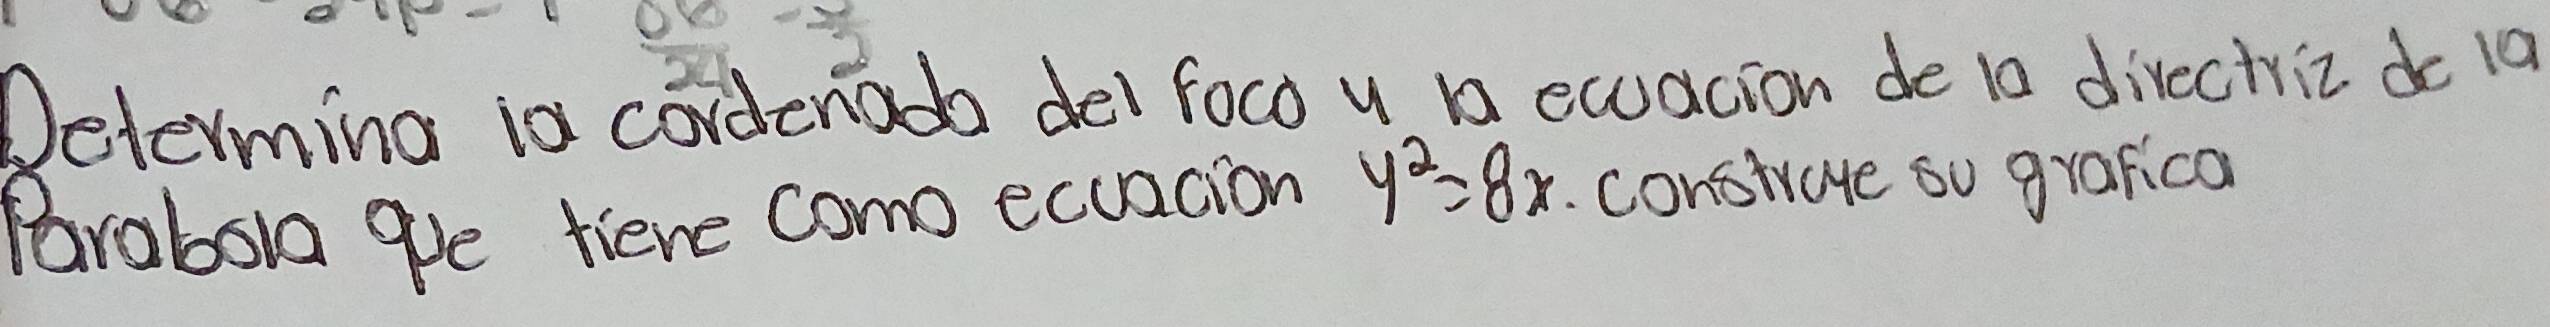 Determina la cordenada del foco y la ecuacion de la directriz de la
Parabola que tiene como ecuacion y²=8x. construye su grafica